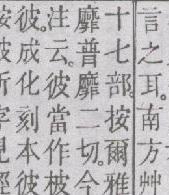 言之耳。南方艸
十七部。按爾雅
靡普靡二切。今
注云。彼當作柀
彼。成化刻本彼